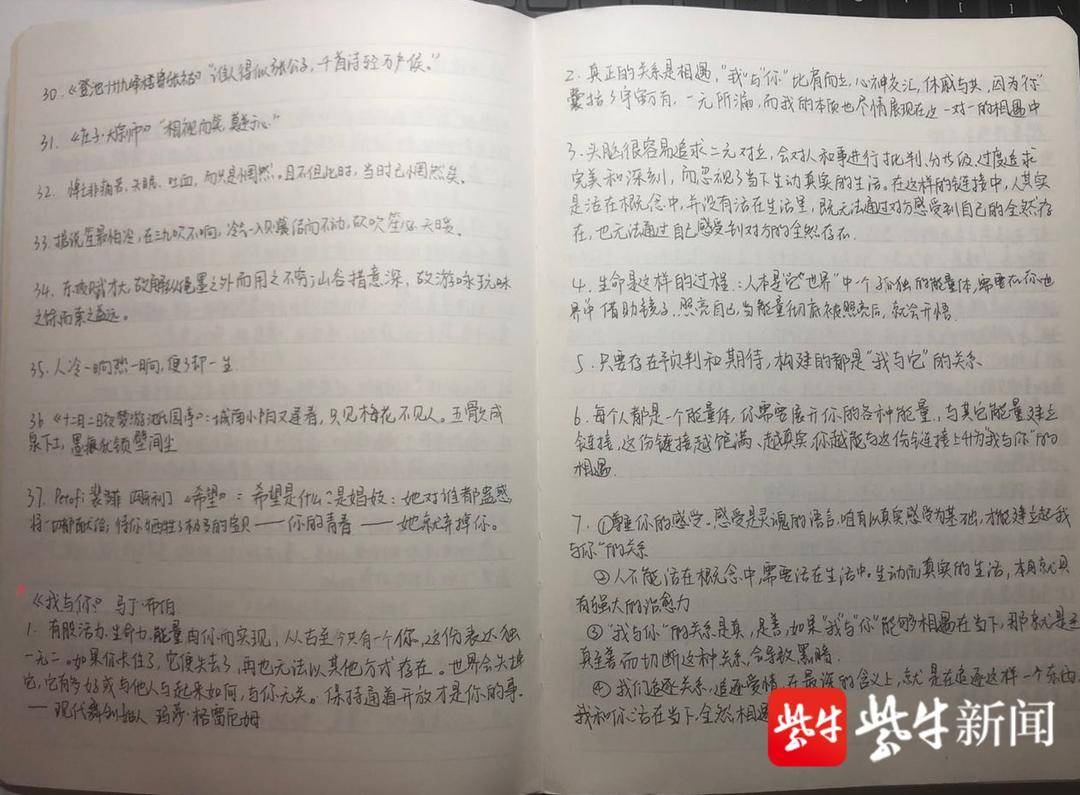 30.《登池州九峰楼寄张祜》"谁人得似张公子,千首诗轻万户侯。"
31.《庄子·大宗师》"相视而笑,莫逆于心"
32. 悼士非痛苦、失眠、吐血,而只是惘然。且不但此时,当时已惘然矣。
33. 据说笙最怕冷,在三九吹不响,冷气一入,簧片不动,欲吹笙必天暖。
34. 东坡赋才大,故解纵绳墨之外而用之不穷;山谷措意深,故游咏玩味
之馀而索之益远。
35. 人冷一晌热一晌,便了却一生
36《十二月二日夜梦游沈氏园亭》:城南小陌又逢春,只见梅花不见人。玉骨久成
泉下土,墨痕犹锁壁间尘
37. Petofi 裴多菲《希望》:希望是什么?是娼妓:她对谁都蛊惑
将一切都献给;待你牺牲了极多的宝贝——你的青春——她就弃掉你。
《我与你》 马丁·布伯
1. 有股活力、生命力、能量由你而实现,从古至今只有一个你,这份表达独
一无二。如果你卡住了,它便失去了,再也无法以其他方式存在。世界会失掉
它,它有多好或与他人与起来如何,与你无关。保持通道开放才是你的事。
——现代舞创始人 玛莎·格雷厄姆
2. 真正的关系是相遇,"我"与"你"比肩而立,心神交汇,休戚与共,因为"你"
囊括了宇宙万有,一元所漏,而我的本质也尽情展现在这一对一的相遇中
3. 头脑很容易追求二元对立,会对人和事进行批判、分析、过度追求
完美和深刻,而忽视了当下生动真实的生活。在这样的链接中,人其实
是活在概念中,并没有活在生活里,既无法通过对方感受到自己的全然存
在,也无法通过自己感受到对方的全然存在.
4. 生命是这样的过程:人本是"它世界"中一个孤独的能量体,需要在"你世
界"中借助镜子,照亮自己,当能量彻底被照亮后,就会开悟.
5. 只要存在预判和期待,构建的都是"我与它"的关系
6. 每个人都是一个能量体,你需要展开你的各种能量,与其它能量建立
链接,这份链接越饱满、越真实,你越能与这份链接上升为"我与你"的
相遇.
7. ①尊重你的感受。感受是灵魂的语言,唯有以真实感受为基础,才能建立起"我
与你"的关系
②人不能活在概念中,需要活在生活中。生动而真实的生活,本身就具
有强大的治愈力
③"我与你"的关系是真,是善,如果"我"与"你"能够相遇在当下,那就是
真至善而切断这种关系,会导致黑暗.
④我们追逐关系,追逐爱情,在最深的含义上,就是在追逐这样一个东西
我和你活在当下,全然相遇
紫牛 紫牛新闻